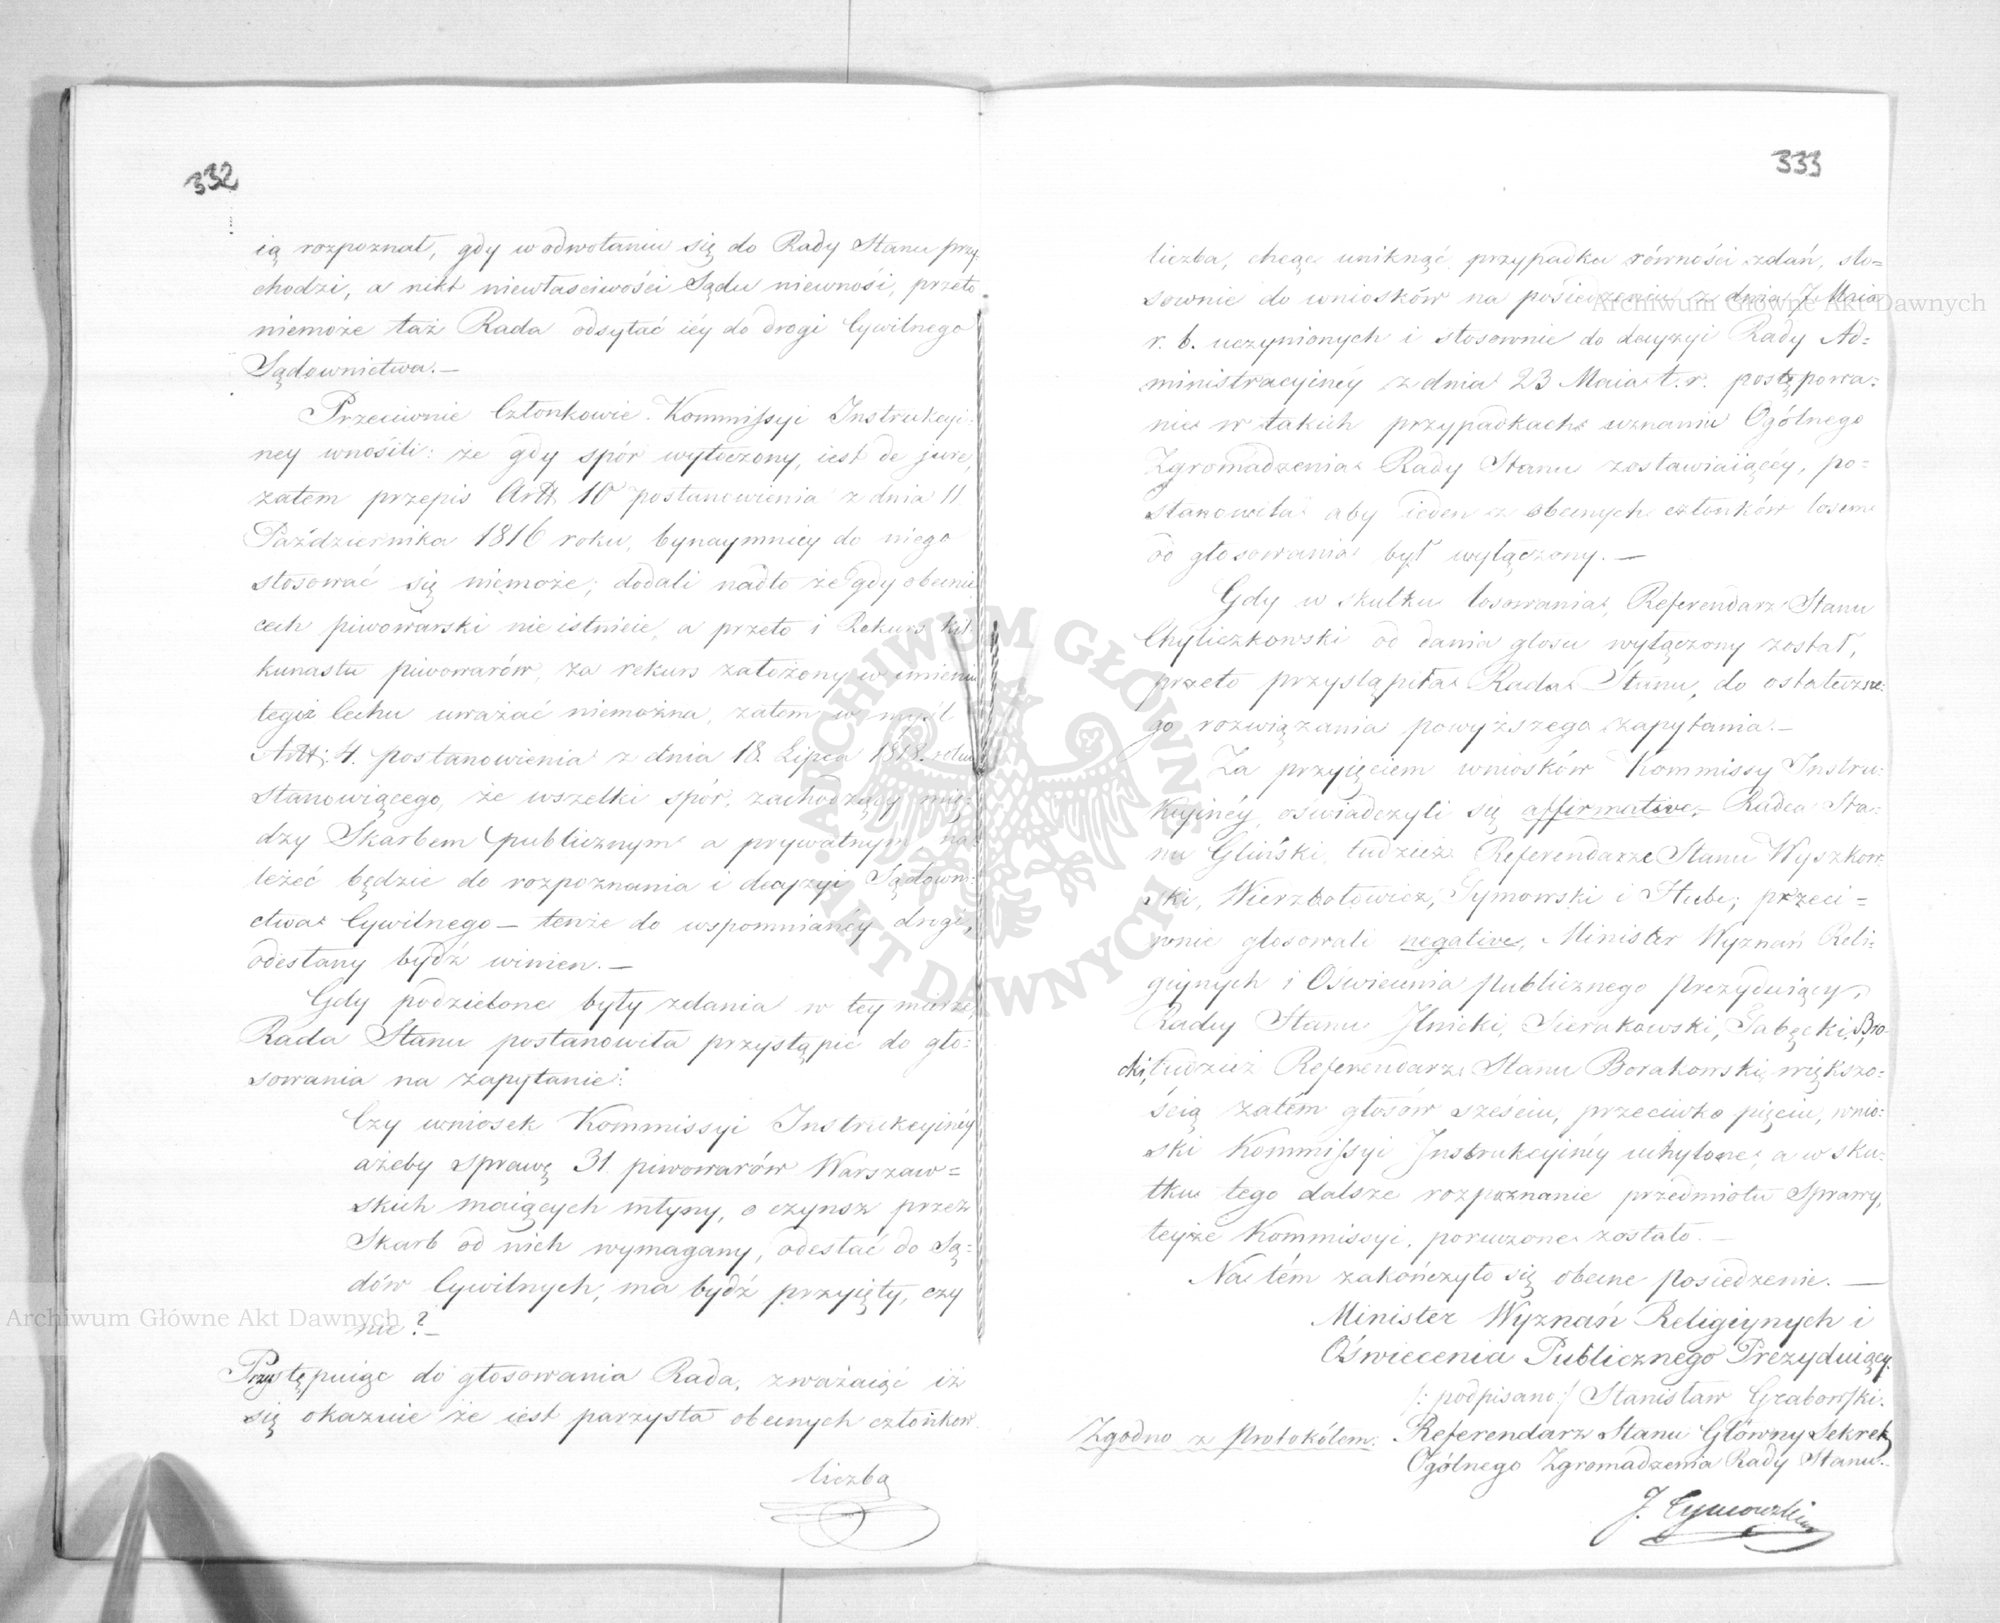 332
ią rozpoznał, gdy w odwołaniu się do Rady Stanu przy
chodzi, a nikt niewłaściwości Sądu niewnosi, przeto
niemoże taż Rada odsyłać iéy do drogi Cywilnego
Sądownictwa.—
Przeciwnie Członkowie Kommissyi Instrukcyi-
ney wnosili: że gdy spór wytoczony, iest de jure,
zatem przepis Artt. 10 postanowienia z dnia 11
Października 1816 roku, bynaymniey do niego
stosować się niemoże; dodali nadto że gdy obecnie
cech piwowarski nie istnieie, a przeto i Rekurs kil-
kunastu piwowarów, za rekurs założony w imieniu
tegoż Cechu uważać niemożna, zatem w myśl
Artt: 4. postanowienia z dnia 18. Lipca 1818. roku
stanowiącego, że wszelki spór, zachodzący mię-
dzy Skarbem publicznym a prywatnym, na-
leżeć będzie do rozpoznania i decyzyi Sądowni-
ctwa Cywilnego — tenże do wspomnianéy drogi,
odesłany bydź winien.—
Gdy podzielone były zdania w tey mierze,
Rada Stanu postanowiła przystąpić do gło-
sowania na zapytanie:
Czy wniosek Kommissyi Instrukcyinéy
ażeby sprawę 31. piwowarów Warszaw=
skich maiących młyny, o czynsz przez
Skarb od nich wymagany, odesłać do Są-
dów Cywilnych, ma bydź przyięty, czy
nie?—
Przystępuiąc do głosowania Rada, zważaiąc iż
się okazuie że iest parzysta obecnych członków
liczba
333
liczba, chcąc uniknąć przypadku równości zdań, sto=
sownie do wniosków na posiedzeniu z dnia 7 Maia
r. b. uczynionych i stosownie do decyzyi Rady Ad=
ministracyinéy z dnia 23 Maia t. r. postępowa-
nie w takich przypadkach uznaniu Ogólnego
Zgromadzenia Rady Stanu zostawiaiącéy, po=
stanowiła aby ieden z obecnych członków losem
od głosowania był wyłączony.—
Gdy w skutku losowania, Referendarz Stanu
Chyliczkowski od dania głosu wyłączony został,
przeto przystąpiła Rada Stanu, do ostateczne-
go rozwiązania powyższego zapytania.—
Za przyięciem wniosków Kommissyi Instru-
kcyinéy, oświadczyli się affirmative, Radca Sta-
nu Gliński, tudzież Referendarze Stanu Wyszkow-
ski, Wierzbołowicz, Tymowski i Hube; przeci=
wnie głosowali negative, Minister Wyznań Reli-
giynych i Oświecenia publicznego Prezyduiący,
Radcy Stanu Ilnicki, Sierakowski, Bro-
cki, tudzież Referendarz Stanu Borakowski, większo-
ścią zatém głosów sześciu, przeciwko pięciu, wnio-
ski Kommissyi Instrukcyinéy uchylone, a w sku-
tku tego dalsze rozpoznanie przedmiotu Sprawy,
teyże Kommissyi, poruczone zostało.—
Na tém zakończyło się obecne posiedzenie.—
Minister Wyznań Religiynych i
Oświecenia Publicznego Prezyduiący.
/: podpisano :/ Stanisław Grabowski.
Zgodno z Protokółem: Referendarz Stanu Główny Sekret
Ogólnego Zgromadzenia Rady Stanu.—
J. Tymowski
Archiwum Główne Akt Dawnych
Archiwum Główne Akt Dawnych
ARCHIWUM GŁÓWNE • AKT DAWNYCH •